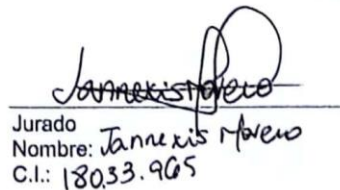 Jannexis Moreno
Jurado
Nombre: Jannexis Moreno
C.I.: 18033.965